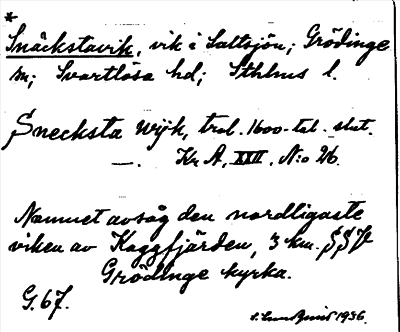 *
Snäckstavik, vik i Saltsjön; Grödinge
sn; Svartlösa hd; Sthlms l.
Snecksta wijk, trol. 1600-tal. slut.
—. Kr A, XXII, N:o 26.
Namnet avsåg den nordligaste
viken av Kaggfjärden, 3 km. SSV
Grödinge kyrka.
G. 67.
1936.